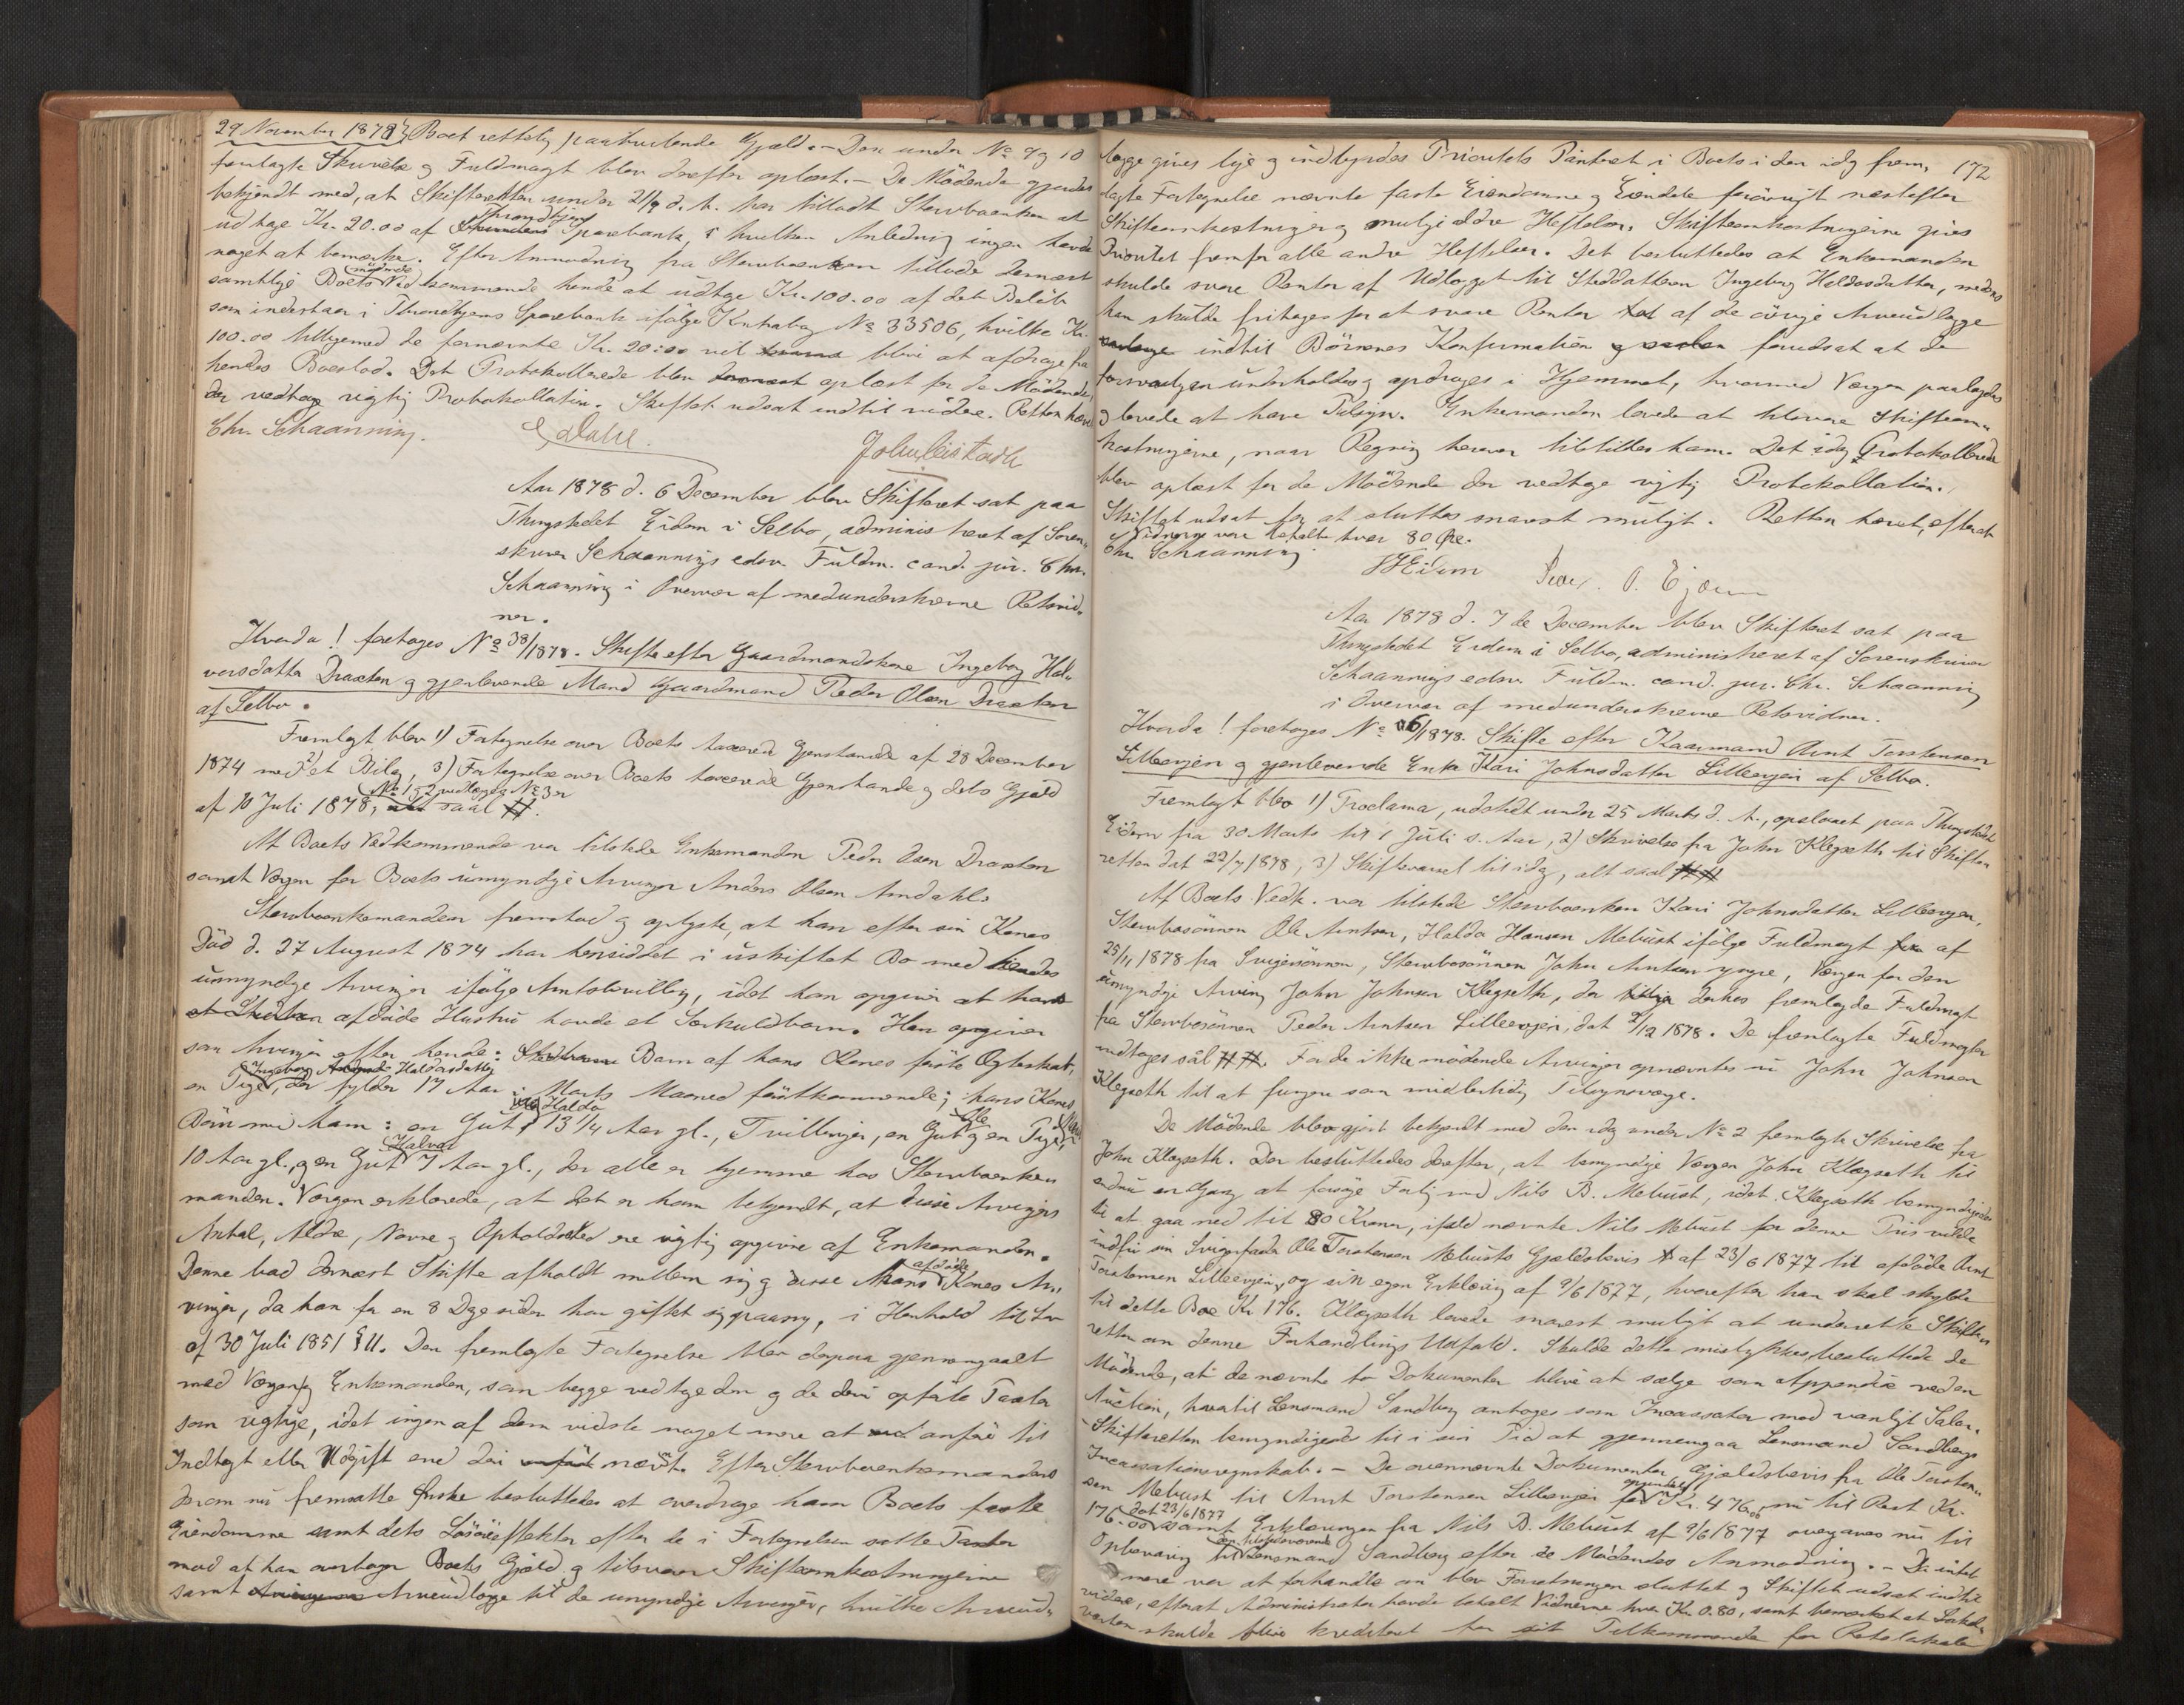 29 November 1878} Boet rettelig paahvilende Gjæld. – Den under No 9 og 10
fremlagte Skrivelse og Fuldmagt blev derefter oplæst. – De Mödende gjordes
bekjendt med, at Skifteretten under 21/9 d. A. har tilladt Stervboenken at
udtage Kr. 20.00 af Throndhjems Sparebank, i hvilken Anledning ingen havde
noget at bemærke. Efter Anmodning fra Stervboenken tillode dernæst
samtlige Boets mödende Vedkommende hende at udtage Kr. 100.00 af det Belöb
som indestaar i Throndhjems Sparebank ifölge Kontrabog No 33506, hvilke Kr.
100.00 tilligemed de fornævnte Kr. 20.00 vil blive at afdrage fra
hendes Boeslod. Det Protokollerede blev oplæst for de Mödende,
der vedtoge rigtig Protokollation. Skiftet udsat indtil videre. Retten hævet
Chr. Schaanning.
Aar 1878 d. 6 December blev Skifteret sat paa
Thingstedet Eidem i Selbo, administreret af Soren-
skriver Schaannings edsv. Fuldm. cand. jur. Chr.
Schaanning i Overvær af medunderskrevne Retsvid-
ner.
Hvorda! foretoges No 38/1878. Skifte efter Gaardmandskone Ingeborg Hal-
vorsdatter Draxten og gjenlevende Mand Gaardmand Peder Olsen Draxten
af Selbo.
Fremlagt blev 1) Fortegnelse over Boets taxerede Gjenstande af 28 December
1874 med 2) et Bilag, 3) Fortegnelse over Boets taxerede Gjenstande og dets Gjæld
af 10 Juli 1878, No 1 & 2 vedlægges No 3
Af Boets Vedkommende var tilstede Enkemanden Peder Olsen Draxten
samt Værgen for Boets umyndige Arvinger Anders Olsen Amdahl.
Stervboenkemanden fremstod og oplyste, at han efter sin Kones
Död d. 27 August 1874 har hensiddet i uskiftet Bo med hendes
umyndige Arvinger ifölge Amtsbevilling, idet han opgiver at hans
afdöde Hustru havde et Særkuldbarn. Han opgiver
som Arvinger efter hende: Barn af hans Kones förste Ægteskab,
en Pige, Ingeborg Haldosdatter der fylder 17 Aar i Marts Maaned förstkommende; hans Kones
Börn med ham: en Gut Haldo 13 1/4 Aar gl., Tvillinger, en Gut Ole og en Pige
10 Aar gl., og en Gut Halvor 7 Aar gl., der alle er hjemme hos Stervboenke-
manden. Værgen erklærede, at det er ham bekjendt, at disse Arvingers
Antal, Alder, Navne og Opholdssted ere rigtig opgivne af Enkemanden.
Denne bad dernæst Skifte afholdt mellem sig og disse hans afdöde Kones Ar-
vinger, da han for en 8 Dage siden har giftet sig paany, i Henhold til Lov
af 30 Juli 1851 § 11. Den fremlagte Fortegnelse blev derpaa gjennemgaaet
med Værgen og Enkemanden, som begge vedtoge den og de deri opförte Taxter
som rigtige, idet ingen af dem vidste noget mere at anföre til
Indtægt eller Udgift end deri nævnt. Efter Stervboenkemandens
derom nu fremsatte Önske besluttedes at overdrage ham Boets faste
Eiendomme samt dets Lösöreeffekter efter de i Fortegnelsen satte Taxter
mod at han overtager Boets Gjæld og tilsvarer Skifteomkostningerne
samt Arveudlægge til de umyndige Arvinger, hvilke Arveud-
172
lægge gives lige og indbyrdes Prioritets Panteret i Boets i den idag frem-
lagte Fortegnelse nævnte faste Eiendomme og Eiendele forövrigt næstefter
Skifteomkostninger og mulige ældre Heftelser. Skifteomkostningerne gives
Prioritet fremfor alle andre Heftelser. Det besluttedes at Enkemanden
skulde svare Renter af Udlægget til Steddatteren Ingeborg Haldosdatter, medens
han skulde fritages for at svare Renter af de övrige Arveudlægge
indtil Börnenes Konfirmation forudsat at de
forsvarligen underholdes og opdrages i Hjemmet, hvormed Værgen paalagdes
og lovede at have Tilsyn. Enkemanden lovede at tilsvare Skifteom-
kostningerne, naar Regning herover tilstilles ham. Det idag Protokollerede
blev oplæst for de Mödende der vedtoge rigtig Protokollation.
Skiftet udsat for at sluttes snarest muligt. Retten hævet, efterat
Vidnerne vare betalte hver 80 Öre.
Chr. Schaanning
Aar 1878 d. 7 de December blev Skifteret sat paa
Thingstedet Eidem i Selbo, administreret af Sorenskriver
Schaannings edsv. Fuldm. cand. jur. Chr. Schaanning
i Overvær af medunderskrevne Retsvidner.
Hvorda! foretoges No 6/1878. Skifte efter Kaarmand Arnt Torstensen
Lilleevjen og gjenlevende Enke Kari Johnsdatter Lilleevjen af Selbo.
Fremlagt blev 1) Proclama, udstedt under 25 Marts d. A., opslaaet paa Thingstedet
Eidem fra 30 Marts til 1 Juli s. Aar, 2) Skrivelse fra John Klegseth til Skifte-
retten dat 22/7 1878, 3) Skiftevarsel til idag, alt saal.
Af Boets Vedk. var tilstede Stervboenken Kari Johnsdatter Lilleevjen,
Stervbosönnen Ole Arntsen, Haldo Hansen Mebust ifölge Fuldmagt af
25/11 1878 fra Svigersönnen, Stervbosönnen John Arntsen yngre, Værgen for den
umyndige Arving John Johnsen Klegseth, der derhos fremlagde Fuldmagt
fra Stervbosönnen Peder Arntsen Lilleevjen, dat /12 1878. De fremlagte Fuldmagter
vedtoges saal. For de ikke mödende Arvinger opnævntes nu John Johnsen
Klegseth til at fungere som midlertidig Tilsynsværge.
De Mödende blev gjort bekjendt med den idag under No 2 fremlagte Skrivelse fra
John Klegseth. Der besluttedes derefter, at bemyndige Værgen John Klegseth til
endnu en Gang at forsöge Forlig med Nils B. Mebust, idet Klegseth bemyndigedes
til at gaa ned til 80 Kroner, ifald nævnte Nils Mebust for denne Pris vilde
indfri sin Svigerfader Ole Torstensen Mebusts Gjældsbevis af 23/6 1877 til afdöde Arnt
Torstensen Lilleevjen, og sin egen Erklæring af 9/6 1877, hvorefter han skal skylde
til dette Boe Kr. 176. Klegseth lovede snarest muligt at underrette Skifte-
retten om denne Forhandlings Udfald. Skulde dette mislykkes besluttede de
Mödende, at de nævnte to Dokumenter blive at sælge som Appendix ved en
Auction, hvortil Lensmand Sandberg antoges som Incassator mod vanligt Salær.
Skifteretten bemyndigedes til i sin Tid at gjennemgaa Lensmand Sandbergs
Incassationsregnskab. – De ovennævnte Dokumenter, Gjældsbevis fra Ole Torsten-
sen Mebust til Arnt Torstensen Lilleevjen for oprindelig Kr. 476, nu til Rest Kr.
176.00 dat 23/6 1877 samt Erklæringen fra Nils B. Mebust af 9/6 1877 overgaves nu til
Opbevaring til den tilstedeværende Lensmand Sandberg efter de Mödendes Anmodning. – Da intet
mere var at forhandle om blev Forretningen sluttet og Skiftet udsat indtil
videre, efterat Administrator havde betalt Vidnerne hver Kr. 0.80, samt bemærket at Lokal-
værten skulde blive krediteret for sit Tilkommende for Retslokale